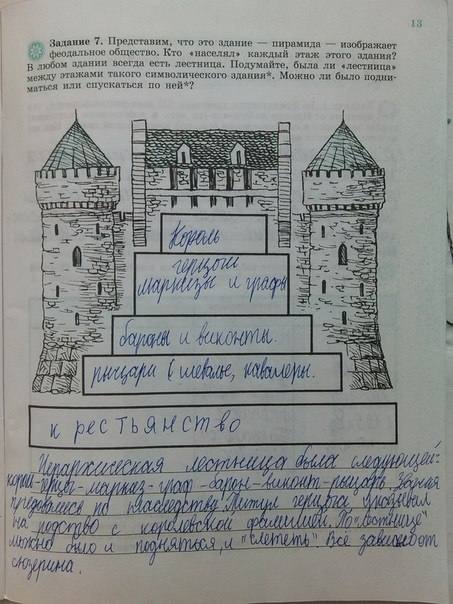 13
Задание 7. Представим, что это здание — пирамида — изображает
феодальное общество. Кто «населял» каждый этаж этого здания?
В любом здании всегда есть лестница. Подумайте, была ли «лестница»
между этажами такого символического здания*. Можно ли было подни-
маться или спускаться по ней*?
Король
герцоги
маркизы и графы
бароны и виконты.
рыцари (шевалье, кавалеры.
крестьянство
Иерархическая лестница была следующей:
король-герцог-маркиз-граф-барон-виконт-рыцарь. Звания
передавались по наследству. Титул герцога указывал
на родство с королевской фамилией. По "лестнице"
можно было и подняться, и "слететь". Всё зависело от
сюзерена.